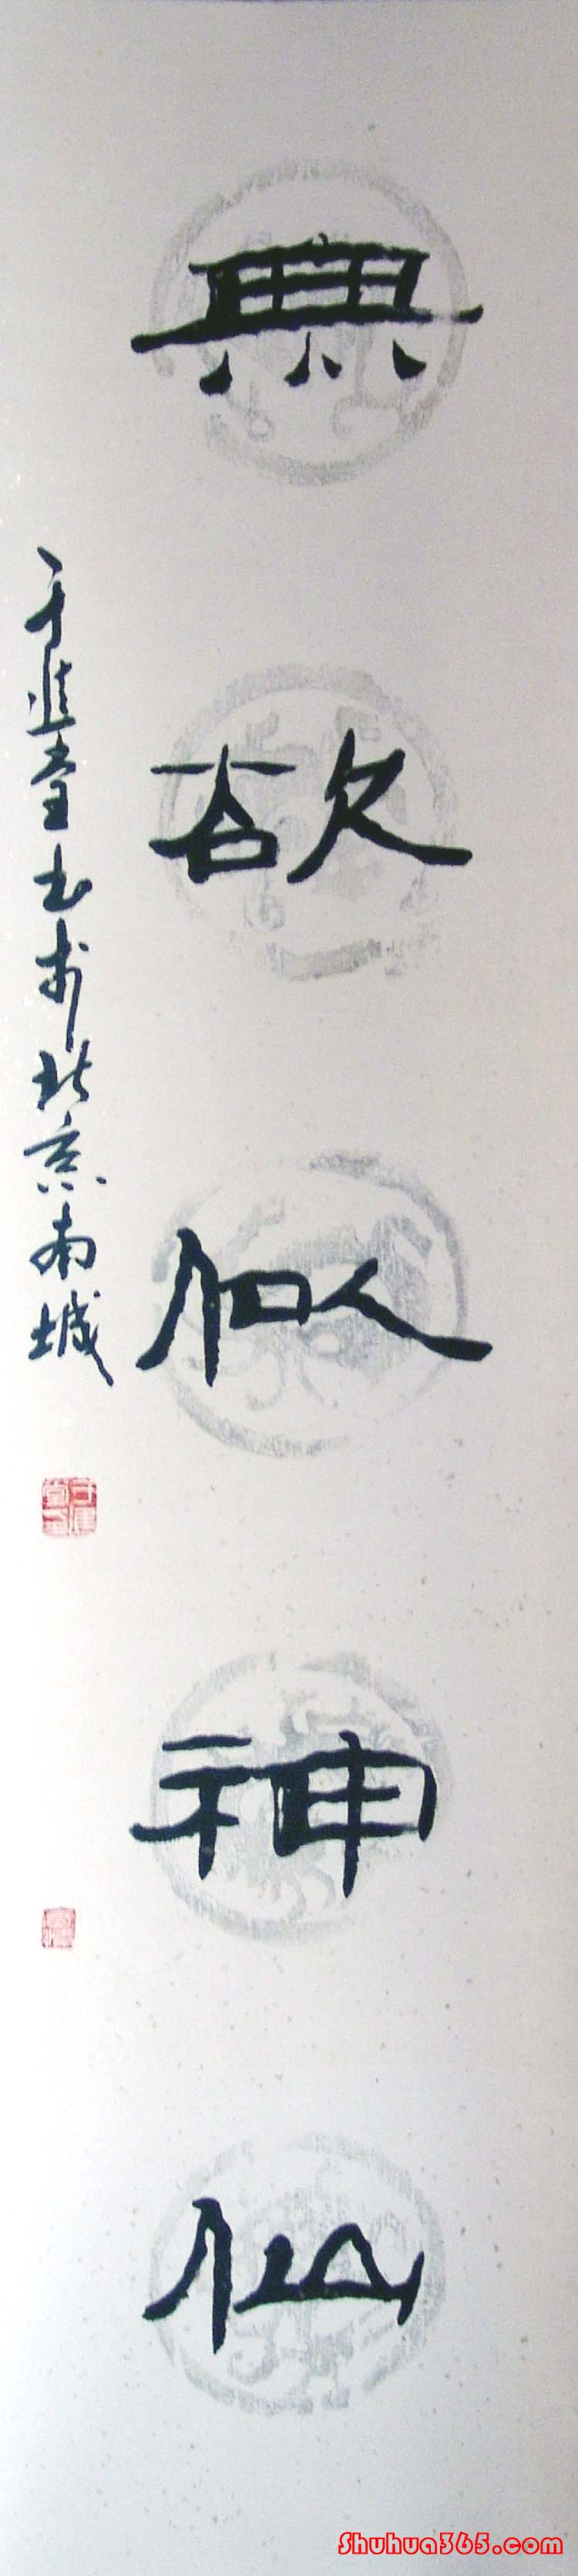 無欲似神仙
于進臺书於北京南城
Shuhua365.com